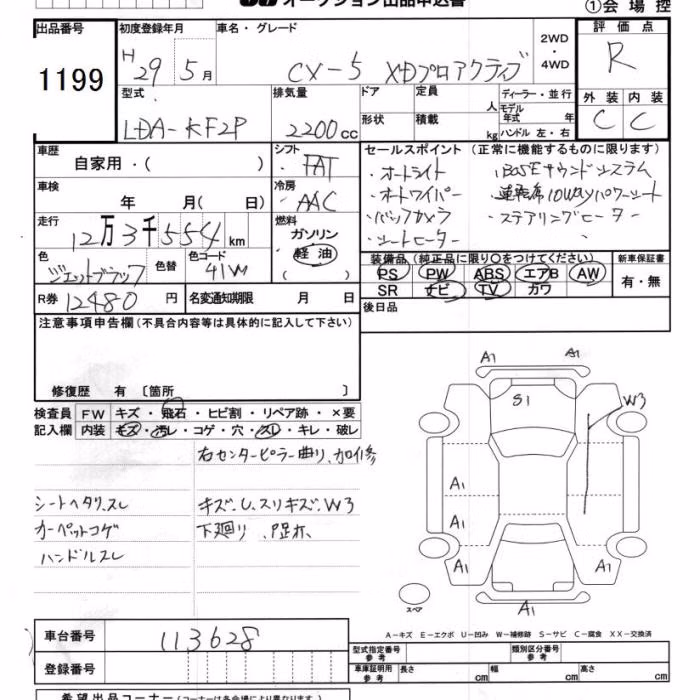 オークション出品申込書
①会場控
出品番号
1199
初度登録年月
H 29 5月
車名・グレード
CX-5 XDプロアクティブ
2WD
・
4WD
評価点
R
外装 内装
C C
型式
LDA-KF2P
排気量
2200cc
ドア
定員
人
形状
積載
kg
ディーラー・並行
モデル年式 年
ハンドル 左・右
車歴
自家用・( )
シフト
FAT
車検
年 月( 日)
冷房
AAC
走行
12万3千554km
燃料
ガソリン
軽油
( )
色
ジェットブラック
色替
色コード
41W
R券 12480円
名変通知期限 月 日
セールスポイント (正常に機能するものに限ります)
・オートライト
・オートワイパー
・バックカメラ
・シートヒーター
・BOSEサウンドシステム
・運転席10WAYパワーシート
・ステアリングヒーター
装備品 (純正品に限り〇をつけてください)
PS PW ABS エアB AW
SR ナビ TV カワ
新車保証書
有・無
後日品
注意事項申告欄(不具合内容等は具体的に記入して下さい)
修復歴 有 〔箇所 〕
検査員記入欄
FW キズ・飛石・ヒビ割・リペア跡・×要
内装 キズ・汚レ・コゲ・穴・スレ・キレ・破レ
右センターピラー曲り、加修
シートヘタリ、スレ
キズ、U、スリキズ、W3
カーペットコゲ
下廻り、
ハンドルスレ
A1 A1
S1
W3
A1
A1
A1 A1
A1
スペア
A-キズ E-エクボ U-凹み W-補修跡 S-サビ C-腐食 XX-交換済
車台番号
113628
登録番号
型式指定番号
参考
類別区分番号
参考
車庫証明用
参考
長さ cm
幅 cm
高さ cm
希望出品コーナー(コーナーは各会場により異なります)